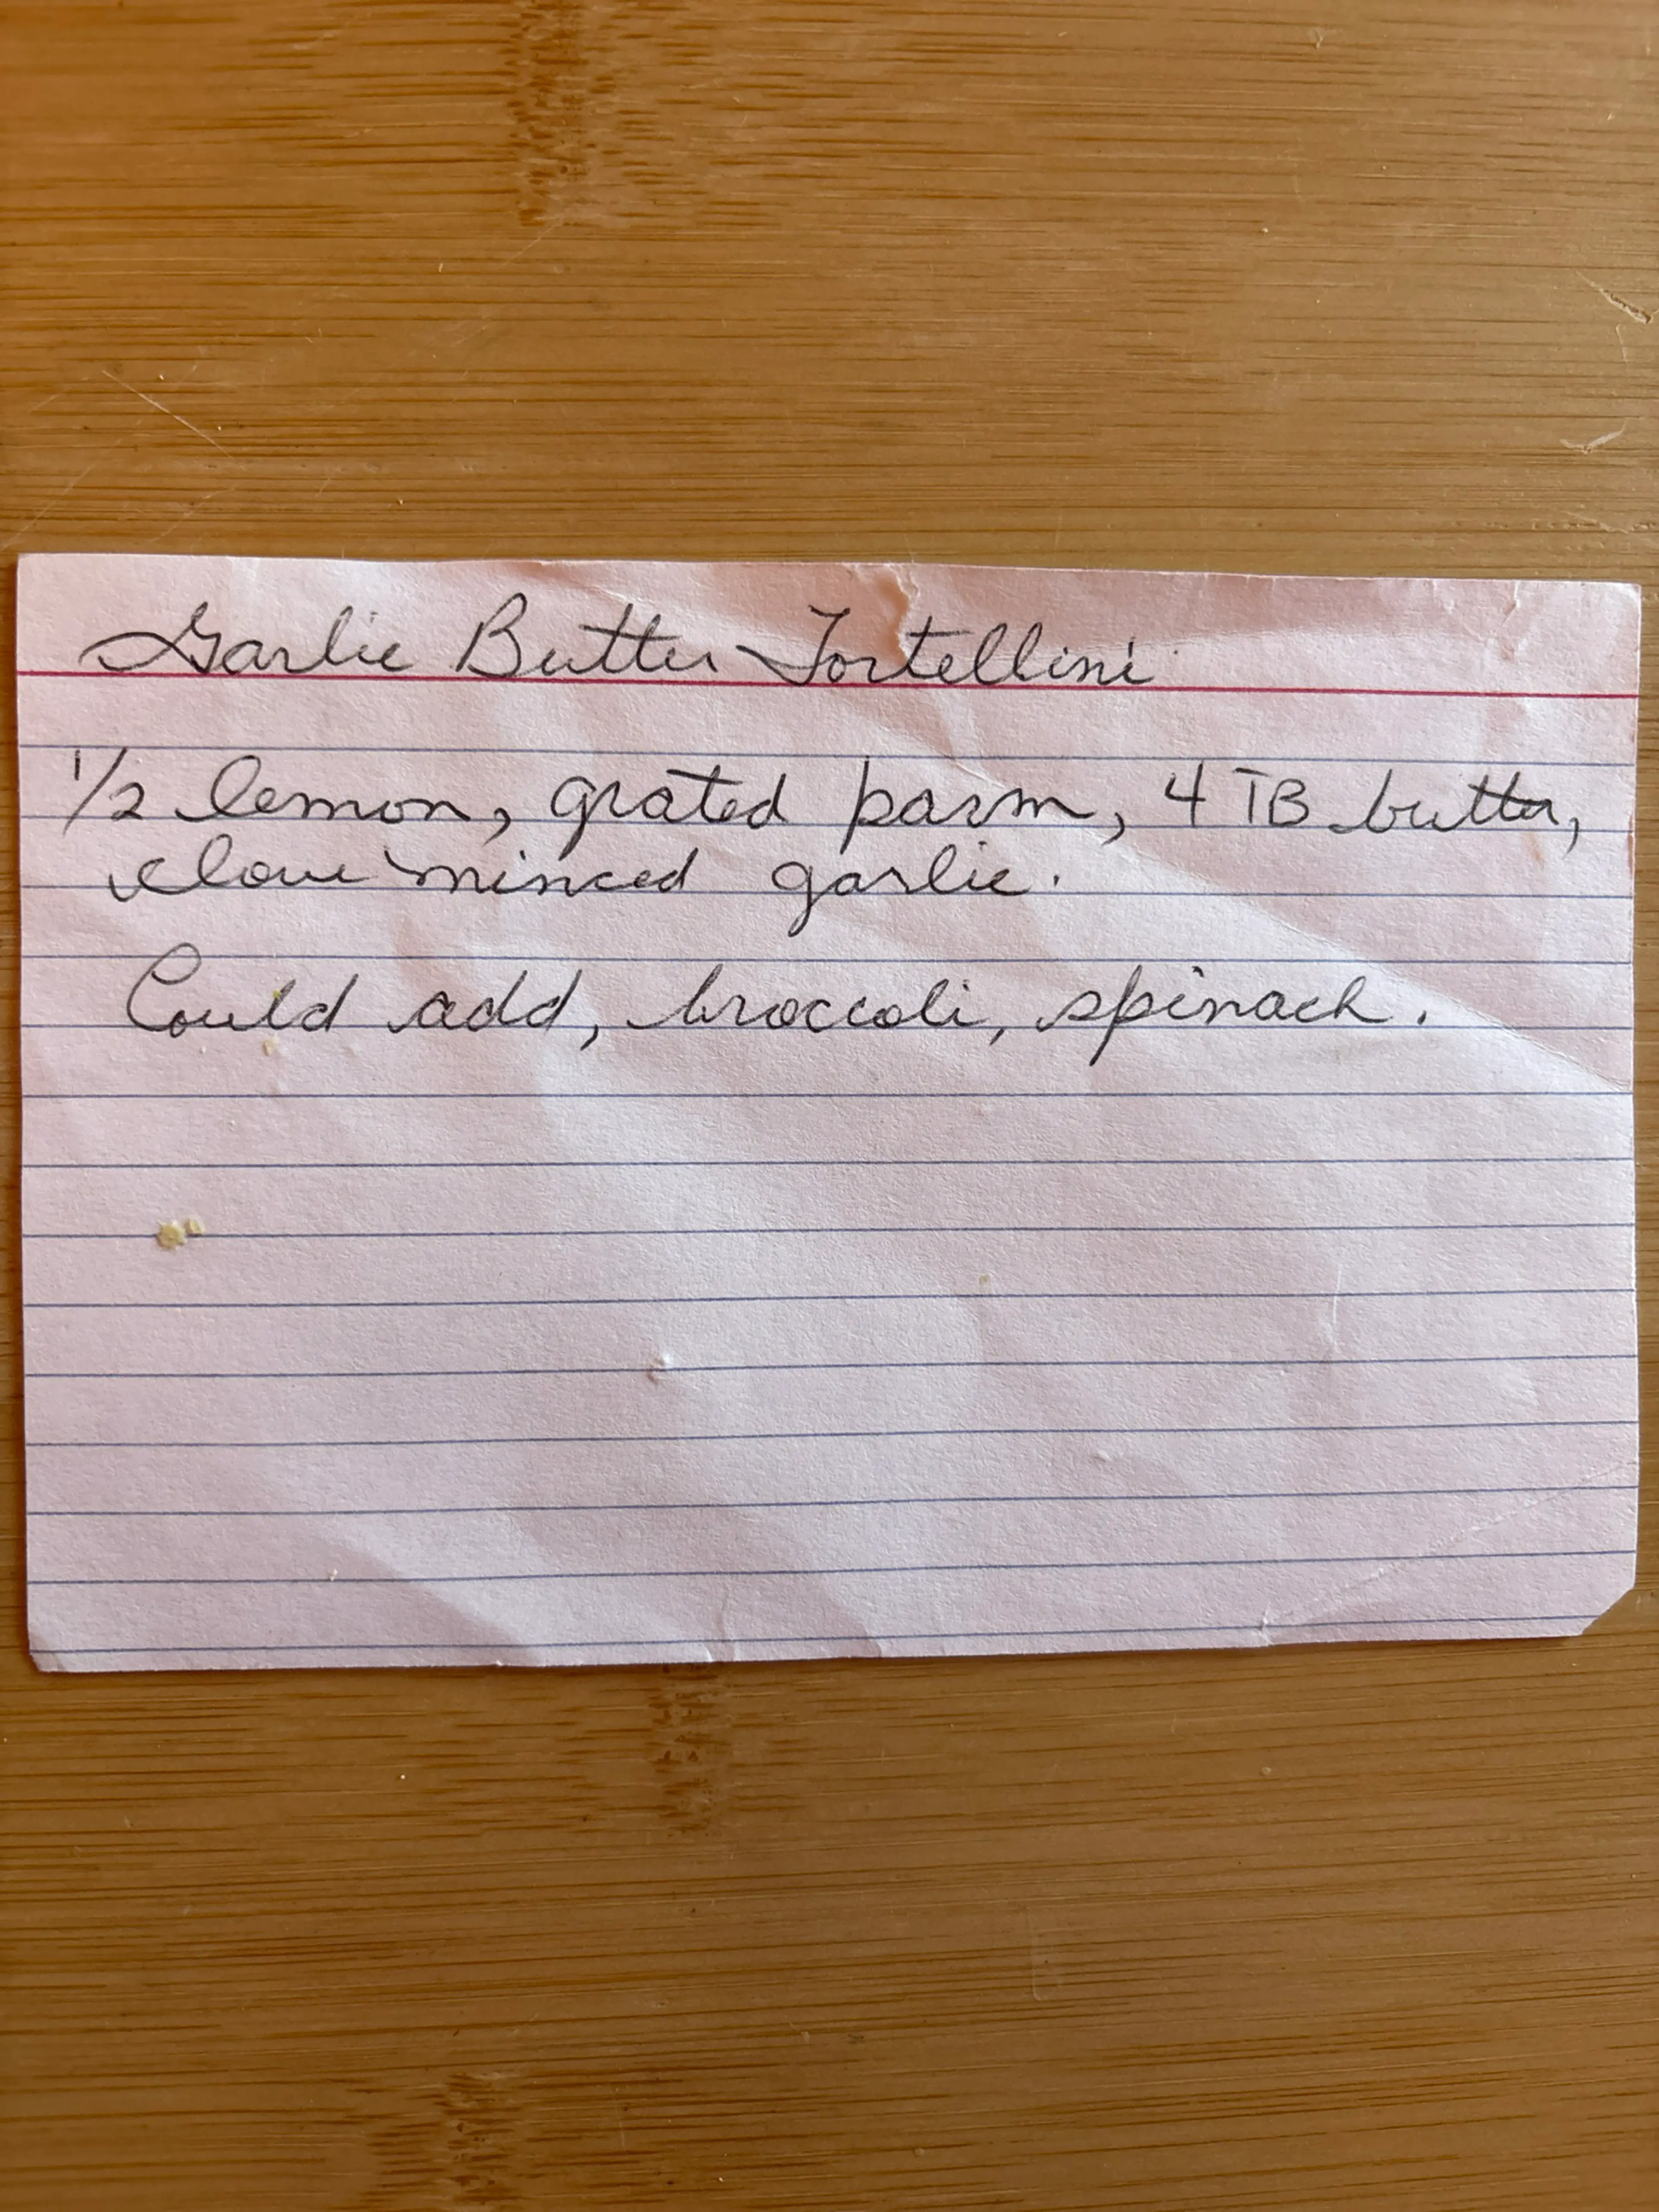 Garlic Butter Tortellini
1/2 lemon, grated parm, 4 TB butter,
clove minced garlic.
Could add, broccoli, spinach.